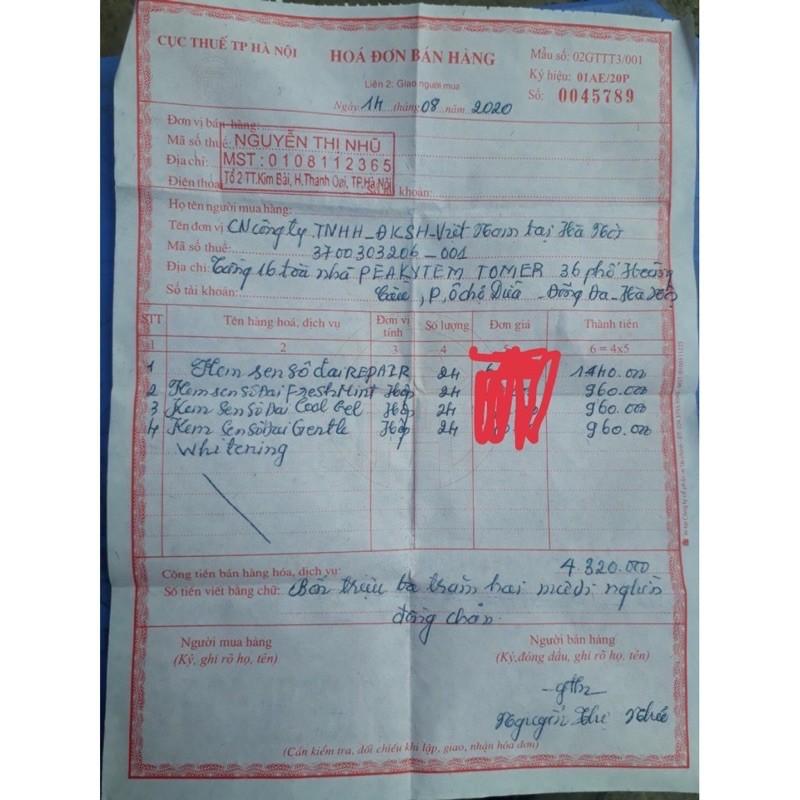 CỤC THUẾ TP HÀ NỘI
HOÁ ĐƠN BÁN HÀNG
Liên 2: Giao người mua
Ngày 14 tháng 08 năm 2020
Mẫu số: 02GTTT3/001
Ký hiệu: 01AE/20P
Số: 0045789
Đơn vị bán hàng:
Mã số thuế:
Địa chỉ:
Điện thoại
khoản:
NGUYỄN THỊ NHŨ
MST: 0108112365
Tổ 2 TT.Kim Bài, H.Thanh Oai, TP.Hà Nội
Họ tên người mua hàng:
Tên đơn vị CN Công ty TNHH-ĐKSH-Việt Nam tại Hà Nội
Mã số thuế: 3700303206-001
Địa chỉ: Tầng 16 toà nhà PEAKYTEM TOMER 36 phố Hoàng
Số tài khoản: Cầu, P, Ô chợ Dừa - Đống Đa - Hà Nội
STT Tên hàng hoá, dịch vụ Đơn vị tính Số lượng Đơn giá Thành tiền
1 2 3 4 6 = 4x5
1 Kem sensôđai REPAIR 24 1440.000
2 Kem sensôđai FreshMint Hộp 24 960.000
3 Kem SenSôĐai Cool Gel Hộp 24 960.000
4 Kem SenSôĐai Gentle Hộp 24 960.000
Whitening
Cộng tiền bán hàng hóa, dịch vụ: 4.320.000
Số tiền viết bằng chữ: Bốn triệu ba trăm hai mươi nghìn
đồng chẵn.
Người mua hàng
(Ký, ghi rõ họ, tên)
Người bán hàng
(Ký,đóng dấu, ghi rõ họ, tên)
Nguyễn Thị
(Cần kiểm tra, đối chiếu khi lập, giao, nhận hóa đơn)